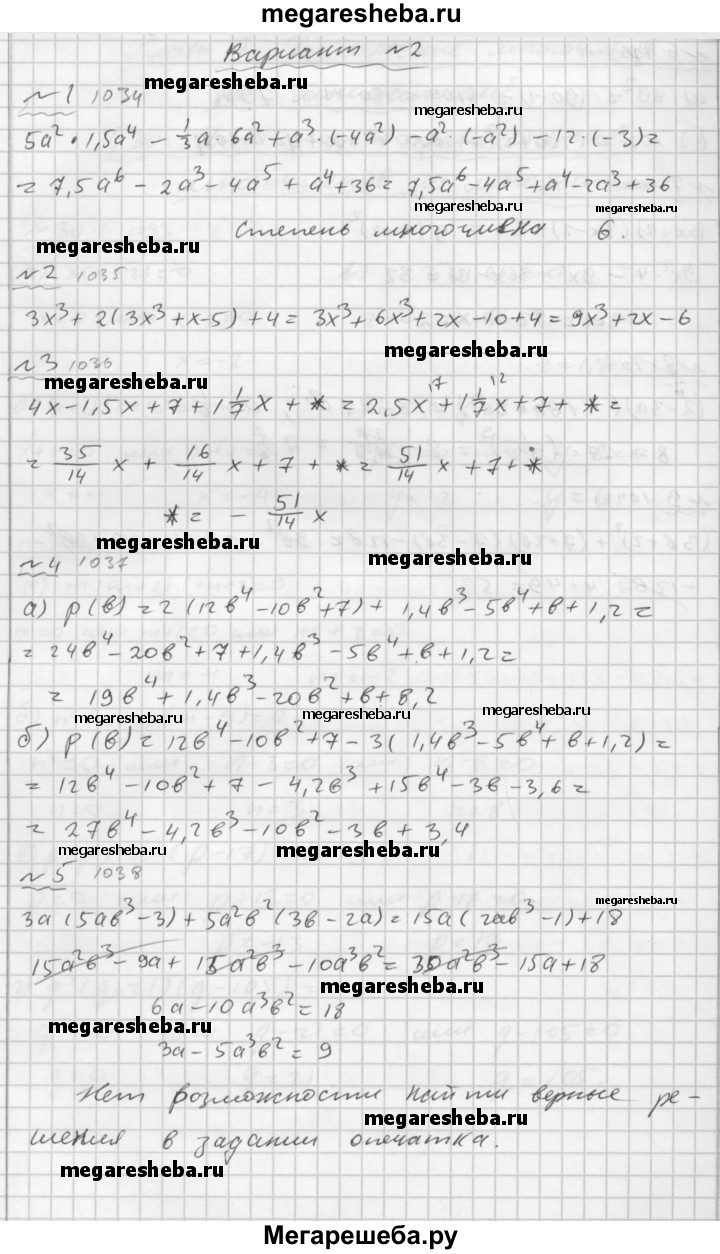 megaresheba.ru
Вариант №2
№1 1034
megaresheba.ru
megaresheba.ru
5a² · 1,5a⁴ − 1/3 a · 6a² + a³ · (−4a²) − a² · (−a²) − 12 · (−3) =
= 7,5a⁶ − 2a³ − 4a⁵ + a⁴ + 36 = 7,5a⁶ − 4a⁵ + a⁴ − 2a³ + 36
megaresheba.ru
megaresheba.ru
Степень многочлена 6.
megaresheba.ru
№2 1035
3x³ + 2(3x³ + x − 5) + 4 = 3x³ + 6x³ + 2x − 10 + 4 = 9x³ + 2x − 6
megaresheba.ru
№3 1036
megaresheba.ru
4x − 1,5x + 7 + 1 1/7 x + * = 2,5x + 1 1/7 x + 7 + * =
= 35/14 x + 16/14 x + 7 + * = 51/14 x + 7 + *
* = − 51/14 x
megaresheba.ru
№4 1037
а) p(b) = 2(12b⁴ − 10b² + 7) + 1,4b³ − 5b⁴ + b + 1,2 =
= 24b⁴ − 20b² + 7 + 1,4b³ − 5b⁴ + b + 1,2 =
= 19b⁴ + 1,4b³ − 20b² + b + 8,2
megaresheba.ru
megaresheba.ru
megaresheba.ru
б) p(b) = 12b⁴ − 10b² + 7 − 3(1,4b³ − 5b⁴ + b + 1,2) =
= 12b⁴ − 10b² + 7 − 4,2b³ + 15b⁴ − 3b − 3,6 =
= 27b⁴ − 4,2b³ − 10b² − 3b + 3,4
megaresheba.ru
megaresheba.ru
№5 1038
megaresheba.ru
3a(5ab³ − 3) + 5a²b²(3b − 2a) = 15a(2ab³ − 1) + 18
15a²b³ − 9a + 15a²b³ − 10a³b² = 30a²b³ − 15a + 18
megaresheba.ru
6a − 10a³b² = 18
megaresheba.ru
3a − 5a³b² = 9
Нет возможности найти верные ре-
megaresheba.ru
шения в задании опечатка.
megaresheba.ru
Мегарешеба.ру